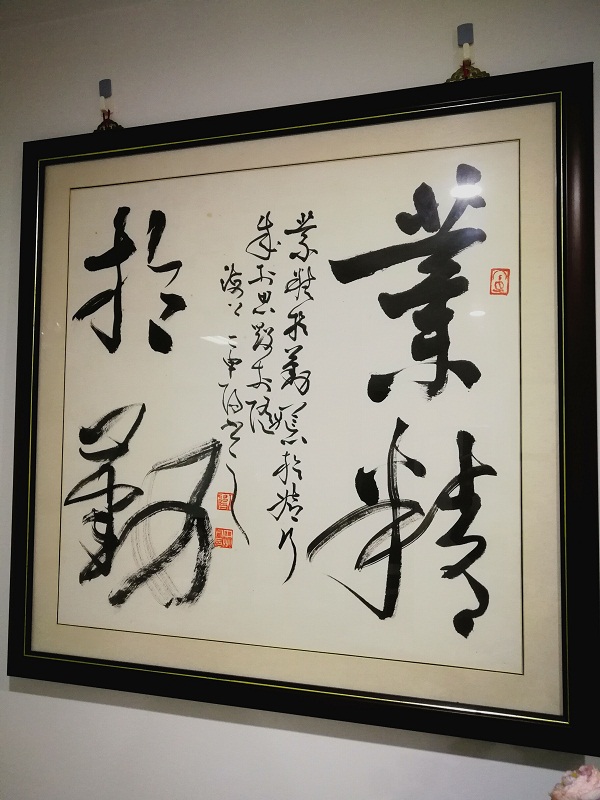 業精
於勤
業精於勤荒於嬉行
成於思毀於隨